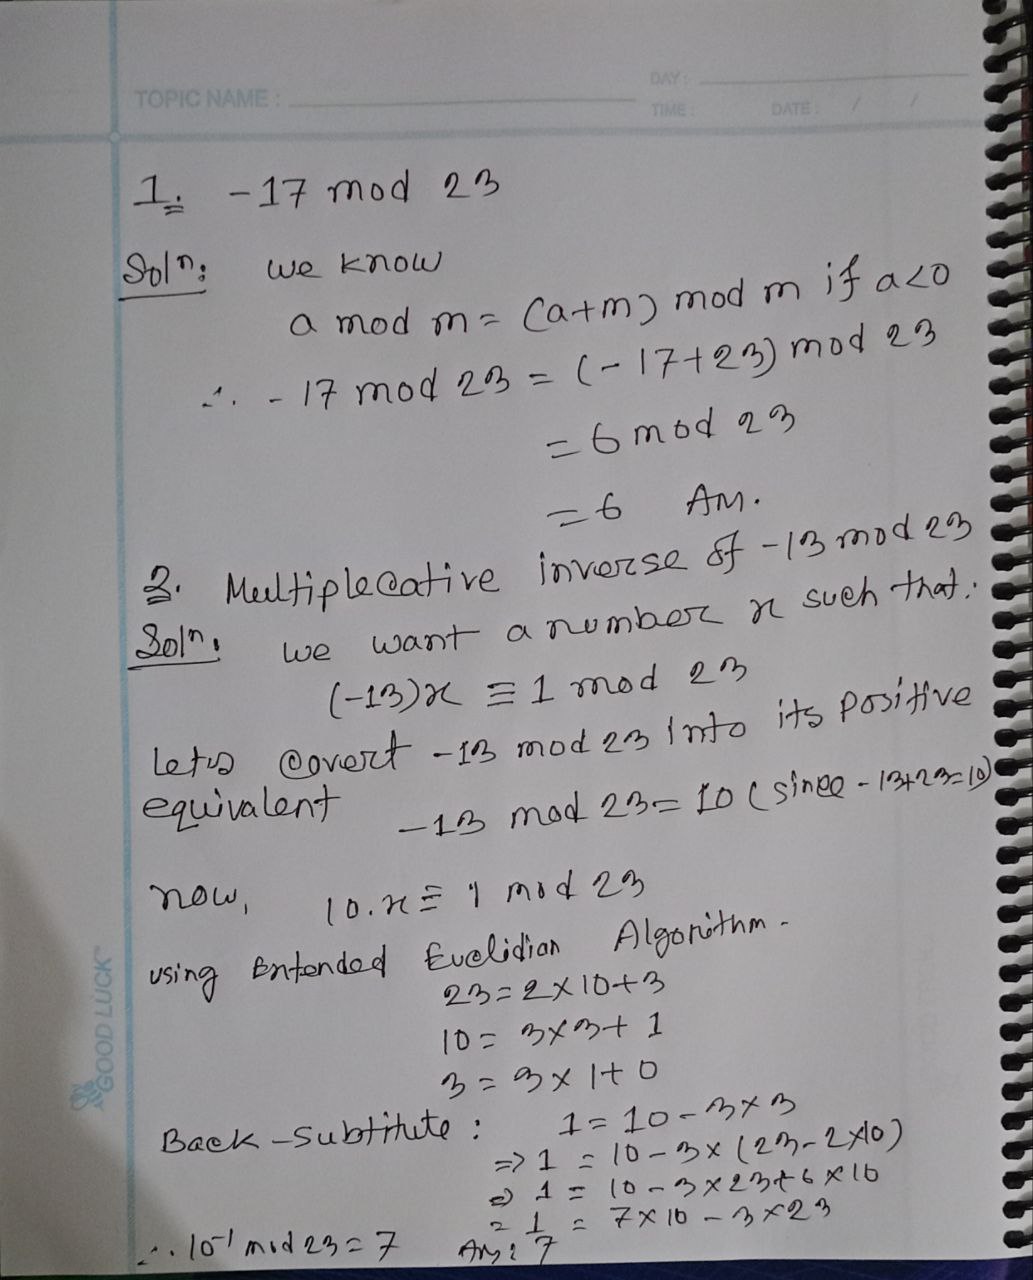 DAY:
TOPIC NAME:
TIME: DATE: / /
1. -17 mod 23
Soln: we know
a mod m = (a+m) mod m if a<0
∴ -17 mod 23 = (-17+23) mod 23
= 6 mod 23
= 6 Ans.
2. Multiplecative inverse of -13 mod 23
Soln: we want a number x such that:
(-13)x ≡ 1 mod 23
Lets covert -13 mod 23 into its positive
equivalent -13 mod 23 = 10 (since -13+23=10)
now, 10.x ≡ 1 mod 23
using Extended Euclidian Algorithm -
23 = 2×10+3
10 = 3×3+1
3 = 3×1+0
Back-subtitute: 1 = 10-3×3
=> 1 = 10-3×(23-2×10)
=> 1 = 10-3×23+6×10
= 1 = 7×10-3×23
∴ 10⁻¹ mod 23 = 7 Ans: 7
GOOD LUCK